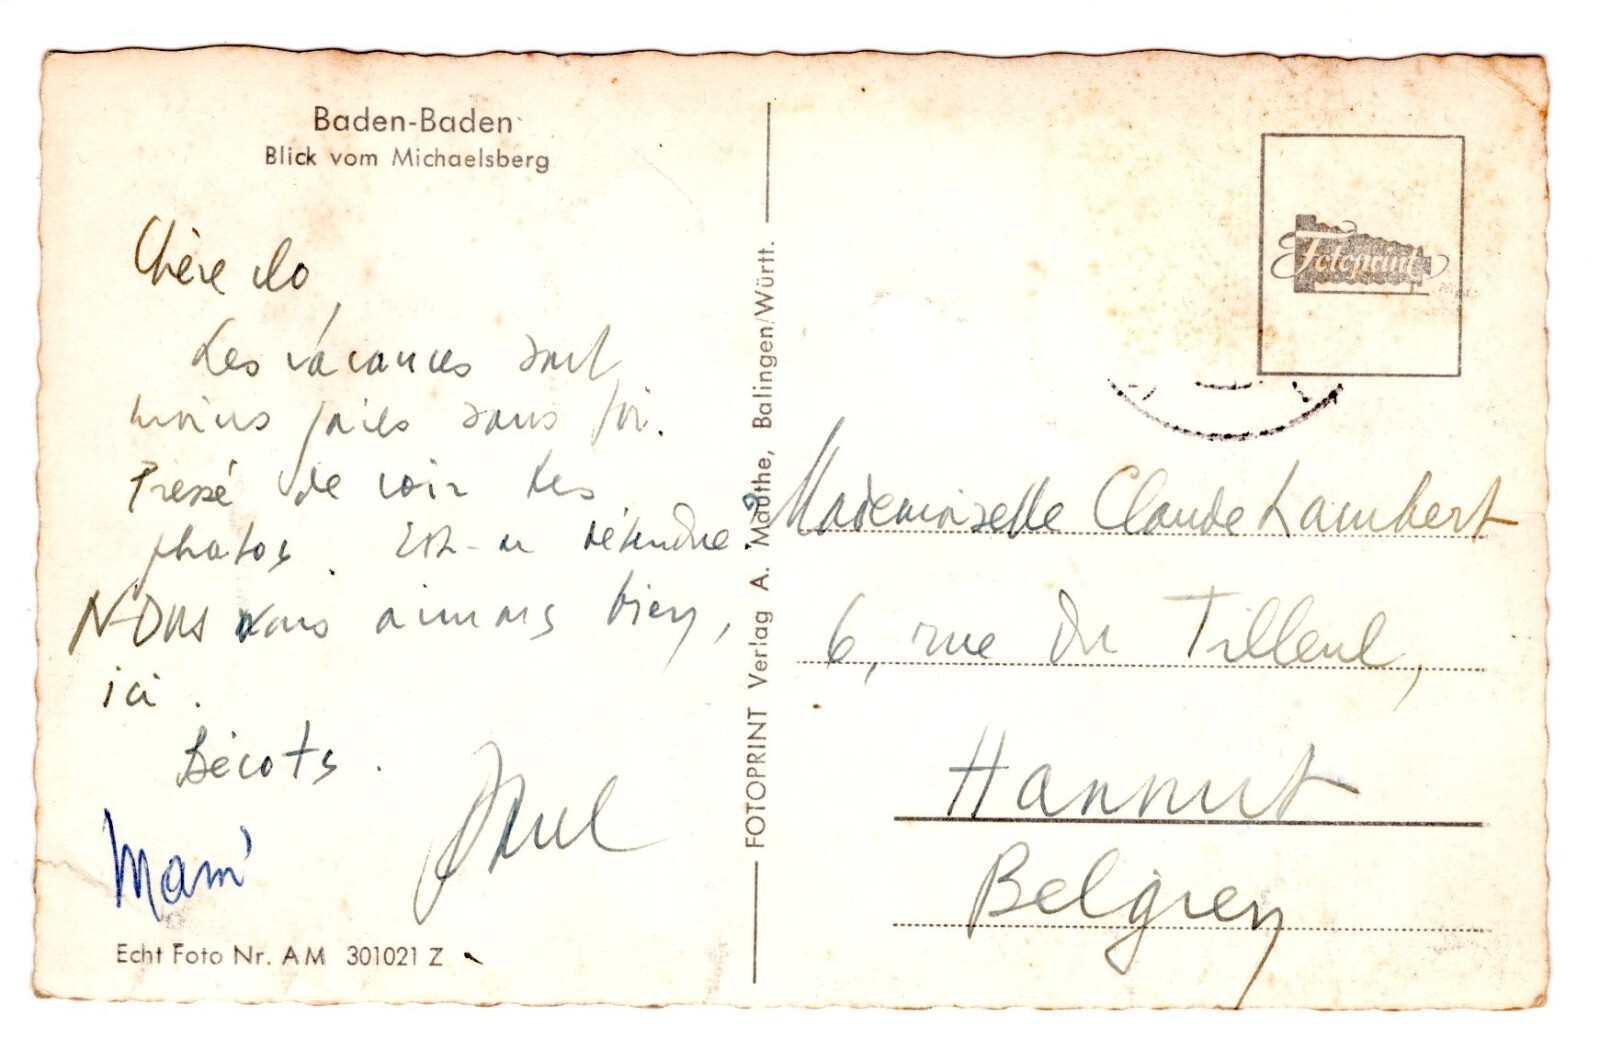 Baden-Baden
Blick vom Michaelsberg
Chère Clo,
Les vacances sont
moins gaies sans toi.
Pressé de voir tes
photos. Est-ce détendue?
Nous nous aimons bien,
ici.
Bécots.
Paul
Mami
Echt Foto Nr. AM 301021 Z
FOTOPRINT Verlag A. Mauthe, Balingen/Württ.
Fotoprint
Mademoiselle Claude Lambert
6, rue du Tilleul,
Hannut
Belgien